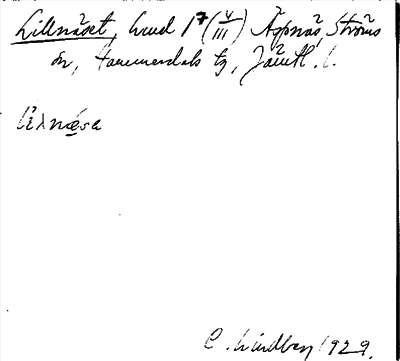 Lillnäset, hmd 1⁷ (V/III) Äspnäs, Ströms
sn, Hammerdals tg, Jämtl. l.
lìλnæsa
C. Lindberg 1929.